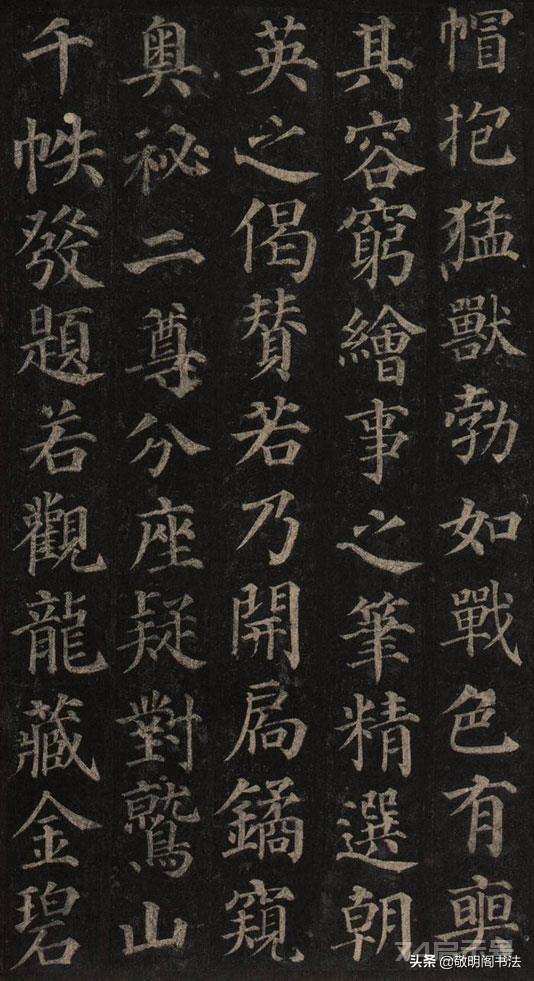 帽抱猛獸勃如戰色有奭
其容窮繪事之筆精選朝
英之偈賛若乃開扃鐍窺
奥祕二尊分座疑對鷲山
千帙發題若觀龍藏金碧
头条 @敬明阁书法